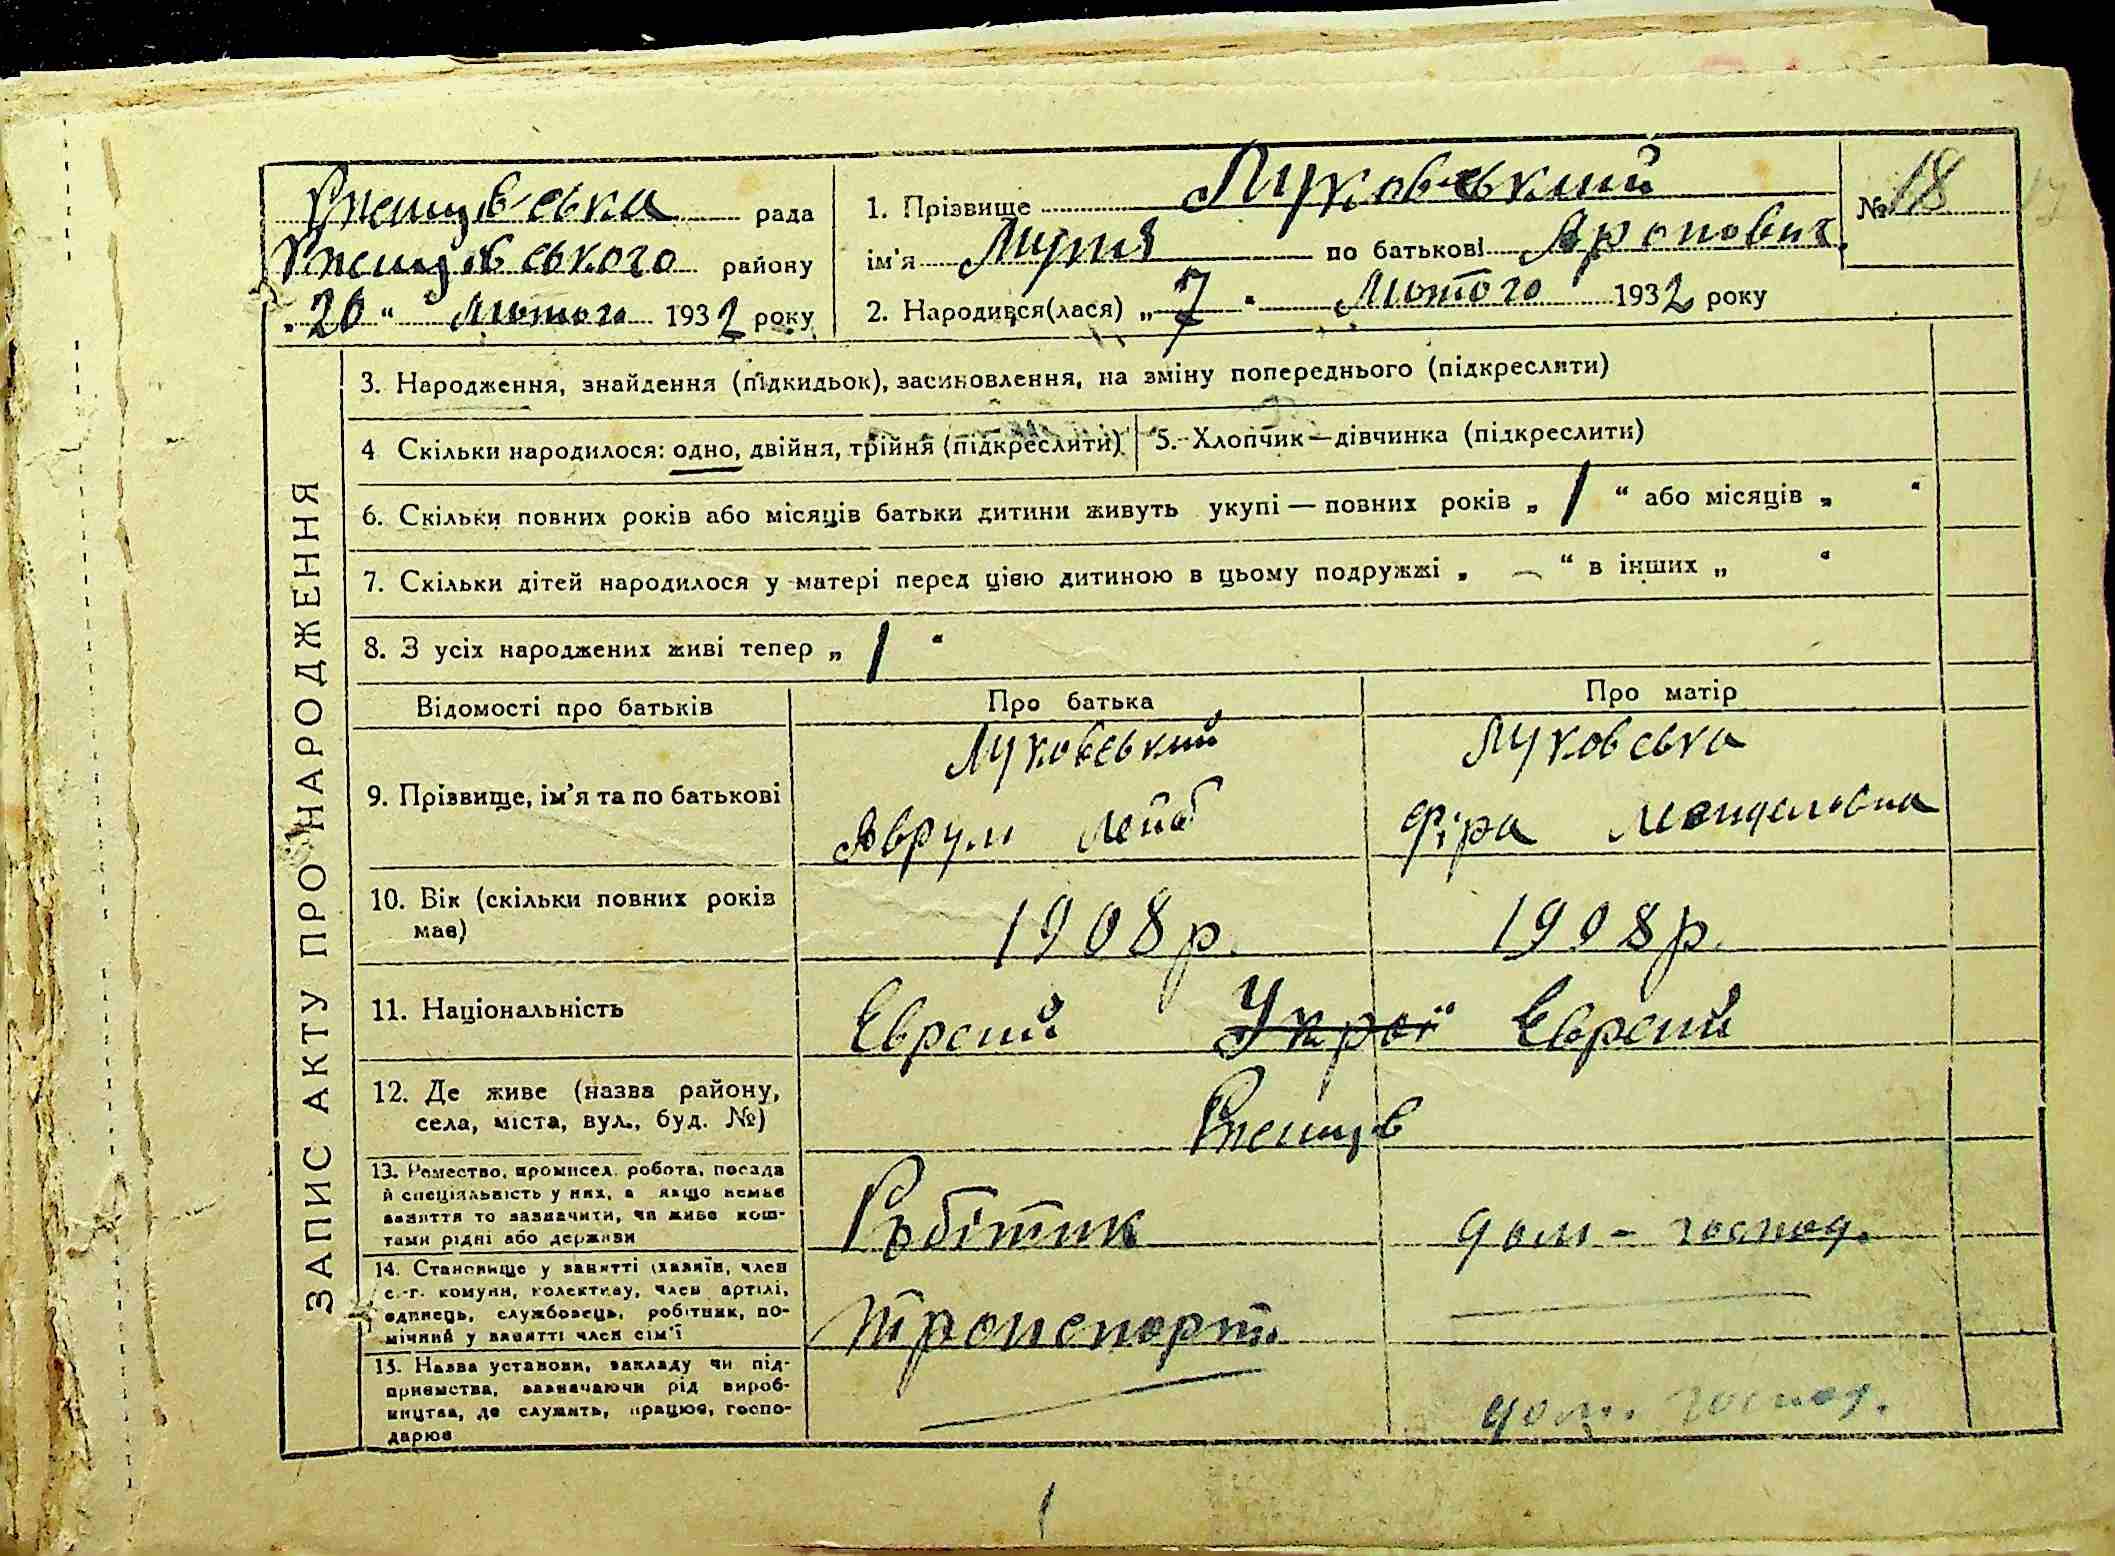 Ржищівська рада
Ржищівського району
„20“ Лютого 1932 року
1. Прізвище Луковський
ім'я Муня по батькові Аронович.
2. Народився(лася) „7“ Лютого 1932 року
№ 18
ЗАПИС АКТУ ПРО НАРОДЖЕННЯ
3. Народження, знайдення (підкидьок), засиновлення, на зміну попереднього (підкреслити)
4 Скільки народилося: одно, двійня, трійня (підкреслити)
5. Хлопчик—дівчинка (підкреслити)
6. Скільки повних років або місяців батьки дитини живуть укупі — повних років „ 1 “ або місяців „ “
7. Скільки дітей народилося у матері перед цією дитиною в цьому подружжі „ — “ в інших „ “
8. З усіх народжених живі тепер „ 1 “
Відомості про батьків Про батька Про матір
9. Прізвище, ім'я та по батькові
Луковський
Аврум Лейб
Луковська
Фіра Менделевна
10. Вік (скільки повних років
має)
1908 р. 1908 р.
11. Національність Еврей Украї Еврей
12. Де живе (назва району,
села, міста, вул., буд. №)
Ржищів
13. Ремество, промисел, робота, посада
й спеціяльність у них, а якщо немає
заняття то зазначити, чи живе кош-
тами рідні або держави
Робітник дом-господ.
14. Становище у занятті (хазяїн, член
с.-г. комуни, колективу, член артілі,
одинець, службовець, робітник, по-
мічний у занятті член сім'ї
Транспорт.
15. Назва установи, закладу чи під-
приємства, зазначаючи рід вироб-
ництва, де служить, працює, госпо-
дарює
дом. господ.